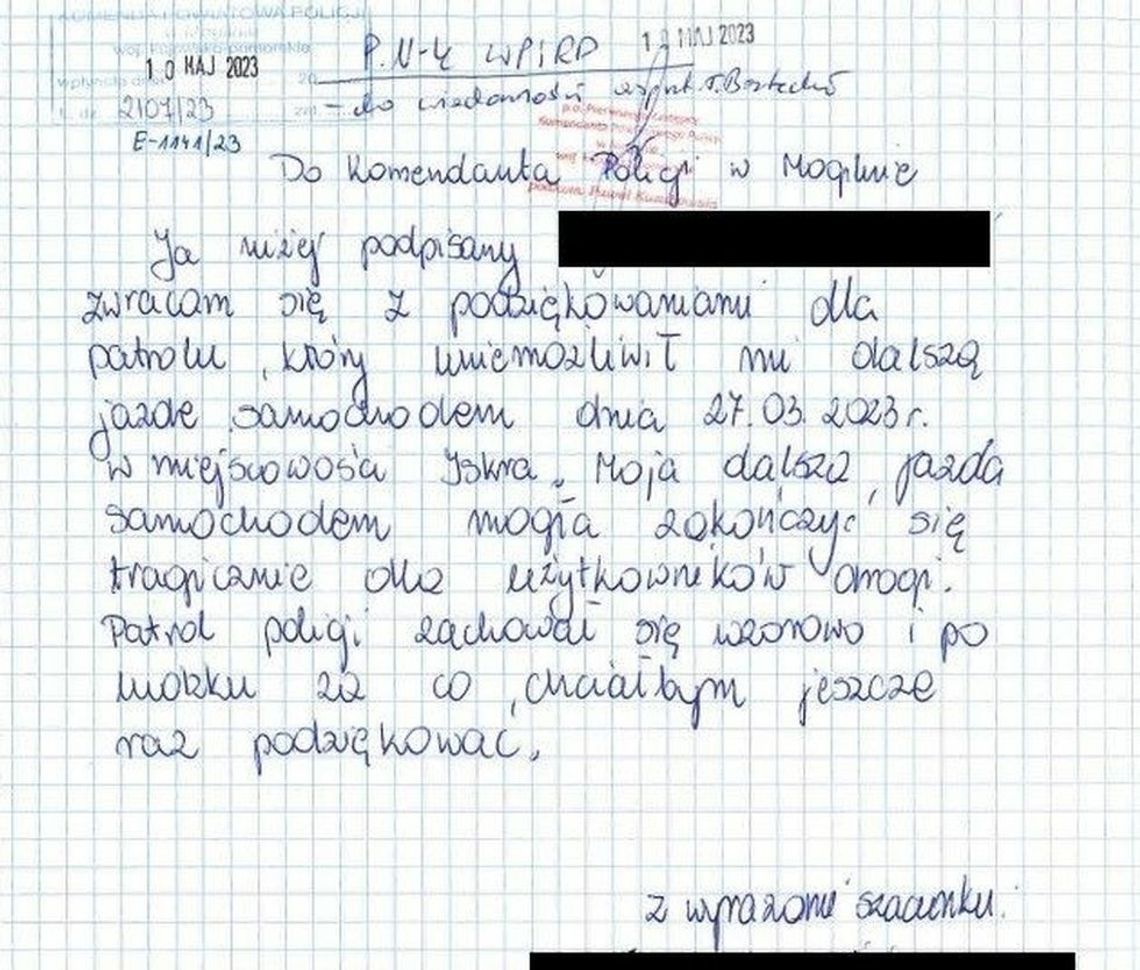 KOMENDA POWIATOWA POLICJI
w Mogilnie
woj. kujawsko-pomorskie
wpłynęło dnia 10 MAJ 2023 20
L. dz. 2107/23 zał.
E-1141/23
P. N-K WPiRD 1 MAJ 2023
- do wiadomości
Do Komendanta Policji w Mogilnie
Ja niżej podpisany
zwracam się z podziękowaniami dla
patrolu, który uniemożliwił mi dalszą
jazdę samochodem dnia 27.03.2023r.
w miejscowości Iskra. Moja dalsza jazda
samochodem mogła zakończyć się
tragicznie dla użytkowników drogi.
Patrol policji zachował się wzorowo i po
ludzku za co, chciałbym jeszcze
raz podziękować.
z wyrazami szacunku.